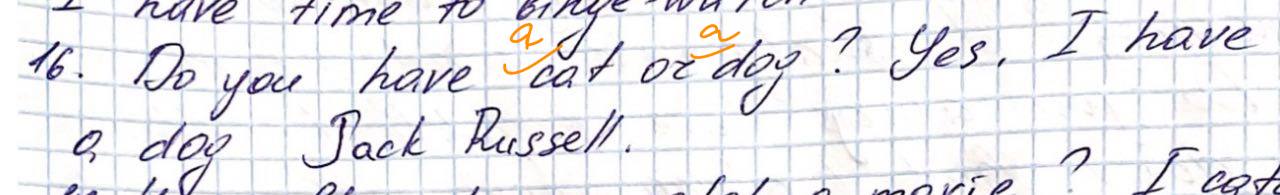 I have time to binge-watch
16. Do you have a cat or a dog? Yes, I have
a dog Jack Russell.
a movie? I cat